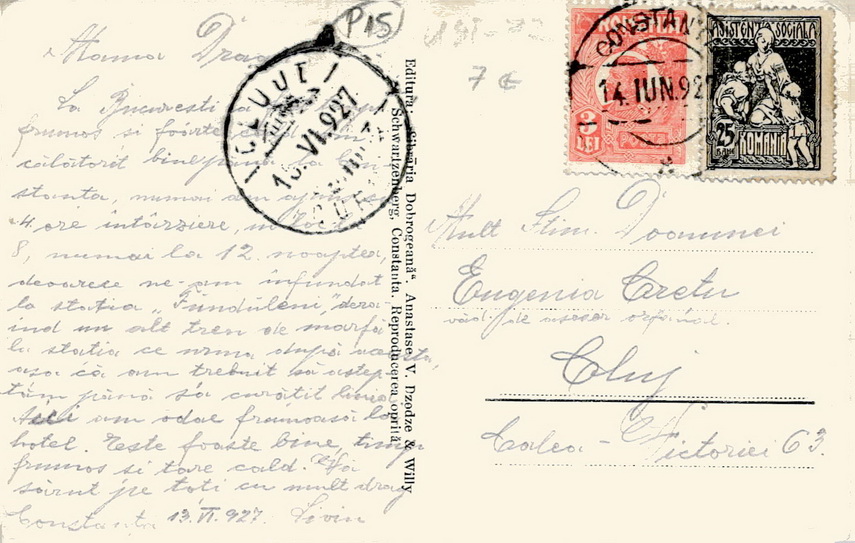 P15
7 €
Mama Drag
La Bucuresti a
frumos si foarte
călătorit bine până la Con
stanta, numai am
4 ore întârziere, in loc
8, numai la 12 noaptea,
deoarece ne-am înfundat
la statia „Funduleni", dera
ind un alt tren de marfă
la statia ce urma după aceasta
asa că am trebuit sa astep
tăm până s'a curătit linia
Aici am odae frumoasă la
hotel. Este foarte bine, timp
frumos si tare cald. Vă
sărut pe toti cu mult drag
Constanța 13.VI.927. Liviu
CLUJ
15. VI. 927
Editura „Librăria Dobrogeană". Anastase V. Dzodze & Willy
Schwartzenberg, Constanta. Reproducerea oprită
ROMANIA
3
LEI
POSTA
CONSTANȚA
14. IUN. 927
ASISTENȚA SOCIALĂ
25
BANI
ROMANIA
Mult Stim. Doamnei
Eugenia Cretu
văd. de asesor orfanal.
Cluj
Calea - Victoriei 63.